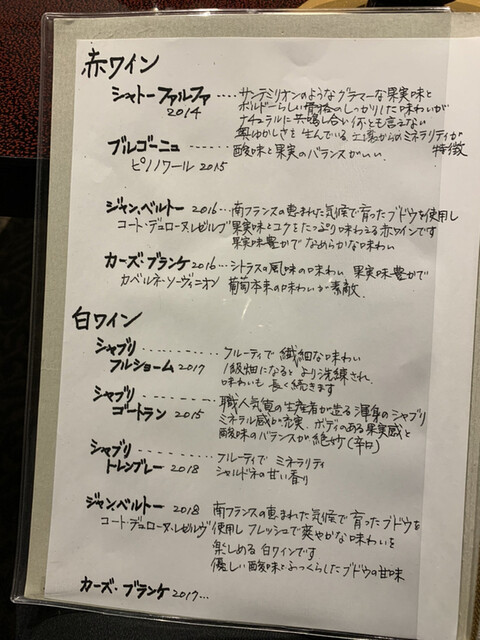 赤ワイン
シャトー ファルファ ・・・・ サンテミリオンのようなグラマーな果実味と
2014 ボルドーらしい骨格のしっかりした味わいが
ナチュラルに共鳴し合い何とも言えない
奥ゆかしさを生んでいる。土壌からのミネラリティが
特徴
ブルゴーニュ ・・・・・ 酸味と果実のバランスがいい。
ピノノワール 2015
ジャン、ベルトー 2016 ・・・ 南フランスの恵まれた気候で育ったブドウを使用し
コート・デュローヌ・レゼルブ 果実味とコクをたっぷり味わえる赤ワインです
果実味豊かでなめらかな味わい
カーズ・ブランケ 2016 ・・・ シトラスの風味の味わい 果実味豊かで
カベルネ・ソーヴィニオン 葡萄本来の味わいが素敵。
白ワイン
シャブリ ・・・・・・・・・ フルーティで繊細な味わい
フルショーム 2017 1級畑になるとより洗練され、
味わいも長く続きます
シャブリ ・・・・・・・・ 職人気質の生産者が造る渾身のシャブリ
ゴートラン 2015 ミネラル感が充実、ボディのある果実感と
酸味のバランスが絶妙(辛口)
シャブリ ・・・・・・・ フルーティで ミネラリティ
トレンブレー 2018 シャルドネの甘い香り
ジャン、ベルトー 2018 南フランスの恵まれた気候で育ったブドウを
コート・デュローヌ・レゼルヴ 使用しフレッシュで爽やかな味わいを
楽しめる白ワインです
優しい酸味とふっくらしたブドウの甘味
カーズ・ブランケ 2017...